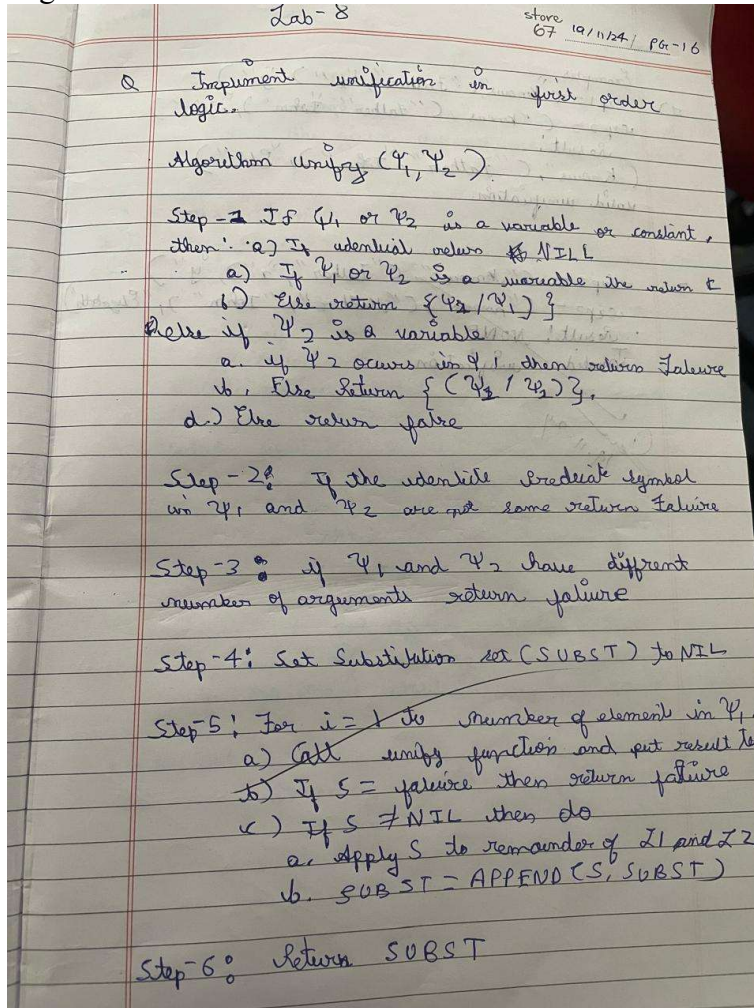 Lab-8
store
67 19/11/24 PG-16
Q Impliment unification in first order
logic.
Algorithm unifry (Ψ1, Ψ2).
Step-1 If Ψ1 or Ψ2 is a variable or constant,
then: a) If idential return NILL
a) If Ψ1 or Ψ2 is a variable the return
b) Else return {Ψ2 / Ψ1) }
else if Ψ2 is a variable
a. if Ψ2 ocurs in Ψ1 then return Faleure
b. Else Return { (Ψ1 / Ψ2) }.
d.) Else return falre
Step-2: If the identile predicate symbol
in Ψ1 and Ψ2 are not same return Faluire
Step-3: if Ψ1 and Ψ2 have diffrent
number of arguments return faliure
Step-4: Set Substitution set (SUBST) to NIL
Step-5: For i = 1 to number of element in Ψ1.
a) Call unify function and put result to
b) If S = faleire then return failure
c) If S ≠ NIL then do
a. Apply S to remainder of L1 and L2
b. SUBST = APPEND (S, SUBST)
Step-6: Return SUBST